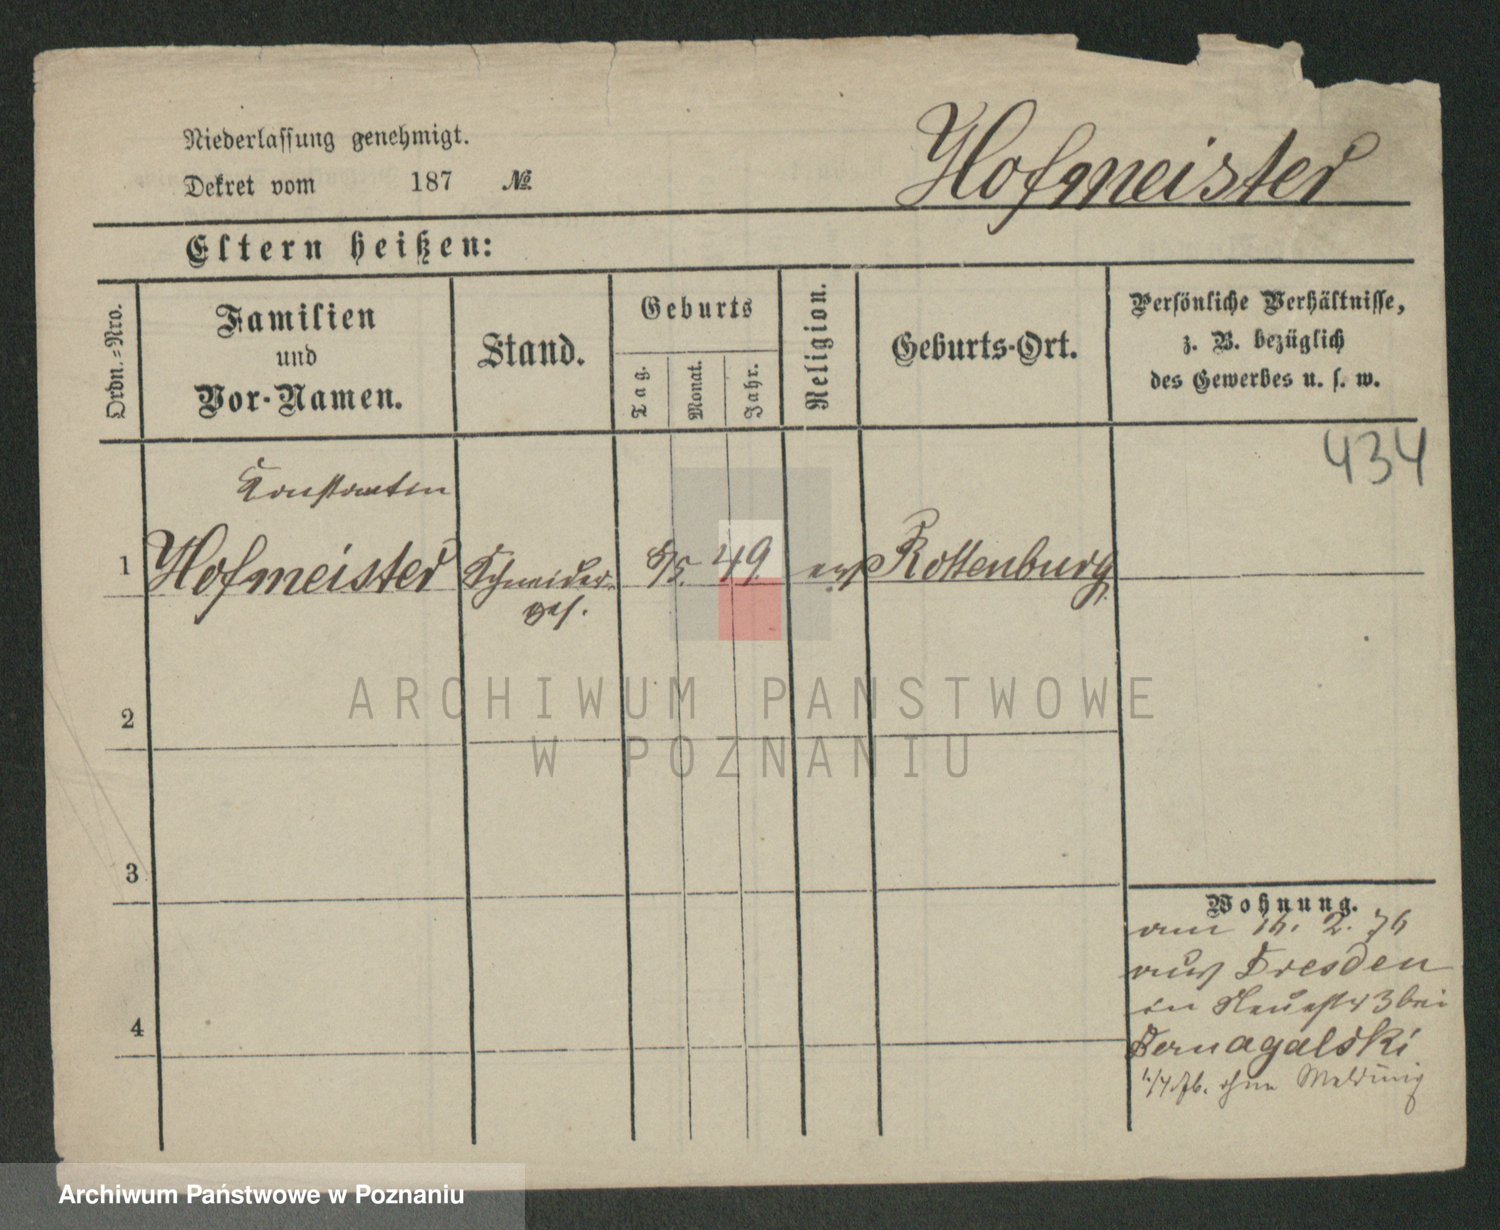 Niederlassung genehmigt.
Dekret vom 187 №
Hofmeister
Eltern heißen:
Ordn.=Nro.
Familien
und
Vor-Namen.
Stand.
Geburts
Tag.
Monat.
Jahr.
Religion.
Geburts-Ort.
Persönliche Verhältnisse,
z. B. bezüglich
des Gewerbes u. s. w.
434
Konstantin
1 Hofmeister Schneider 8/5. 49. ev Rottenburg
ges.
2
3
4
Wohnung.
am 16. 2. 76
aus Dresden
in Neuestr 3 bei
Dernagalski
1/4 76. ohne Meldung
ARCHIWUM PANSTWOWE
W POZNANIU
Archiwum Państwowe w Poznaniu